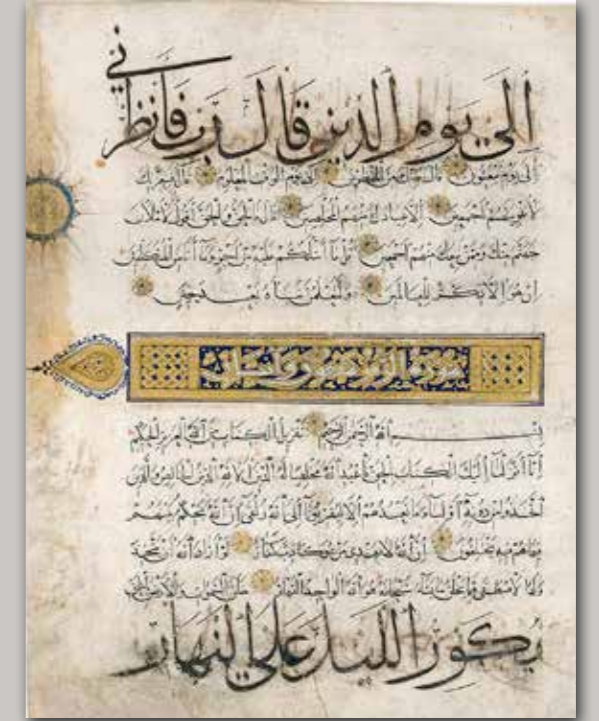 إلى يوم الدين قال رب فأنظرني
إلى يوم يبعثون قال فإنك من المنظرين إلى يوم الوقت المعلوم قال فبعزتك
لأغوينهم أجمعين إلا عبادك منهم المخلصين قال فالحق والحق أقول لأملأن
جهنم منك وممن تبعك منهم أجمعين قل ما أسئلكم عليه من أجر وما أنا من المتكلفين
إن هو إلا ذكر للعالمين ولتعلمن نبأه بعد حين
سورة الزمر سبعون
بسم الله الرحمن الرحيم تنزيل الكتاب من الله العزيز الحكيم
إنا أنزلنا إليك الكتاب بالحق فاعبد الله مخلصا له الدين ألا لله الدين الخالص والذين
اتخذوا من دونه أولياء ما نعبدهم إلا ليقربونا إلى الله زلفى إن الله يحكم بينهم
فيما هم فيه يختلفون إن الله لا يهدي من هو كاذب كفار لو أراد الله أن يتخذ
ولدا لاصطفى مما يخلق ما يشاء سبحانه هو الله الواحد القهار خلق السموات والأرض بالحق
يكور الليل على النهار